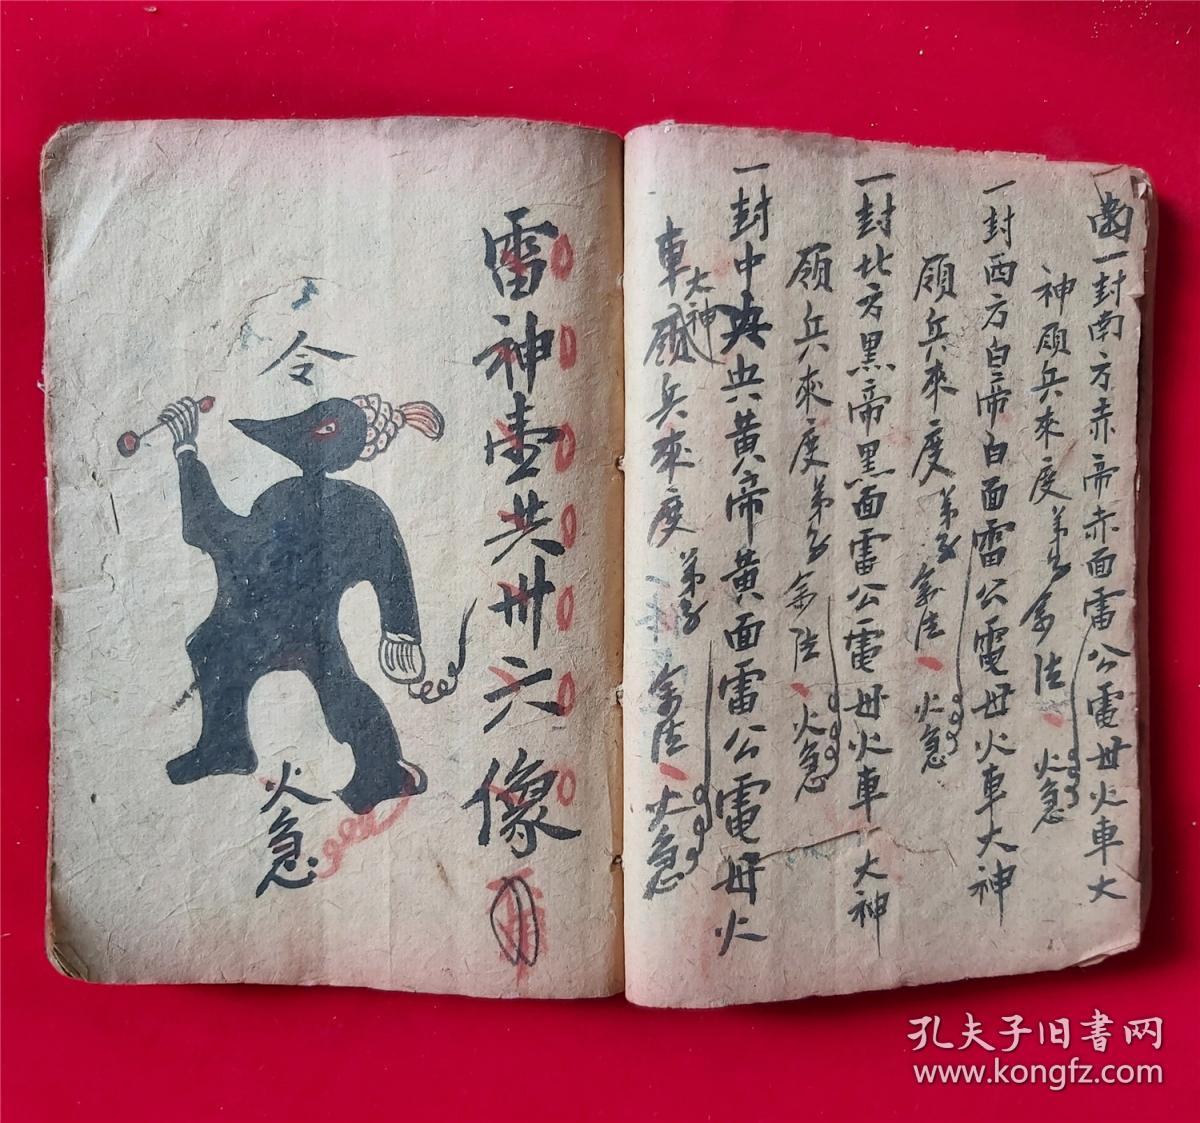 一封南方赤帝赤面雷公電母火車大
神領兵來度弟子 法 火急
一封西方白帝白面雷公電母火車大神
領兵來度弟子 法 火急
一封北方黑帝黑面雷公電母火車大神
領兵來度弟子 法 火急
一封中央央黄帝黄面雷公電母火
車大神領兵來度弟子 法 火急
雷神壹共卅六像
令
火急
孔夫子旧书网
www.kongfz.com